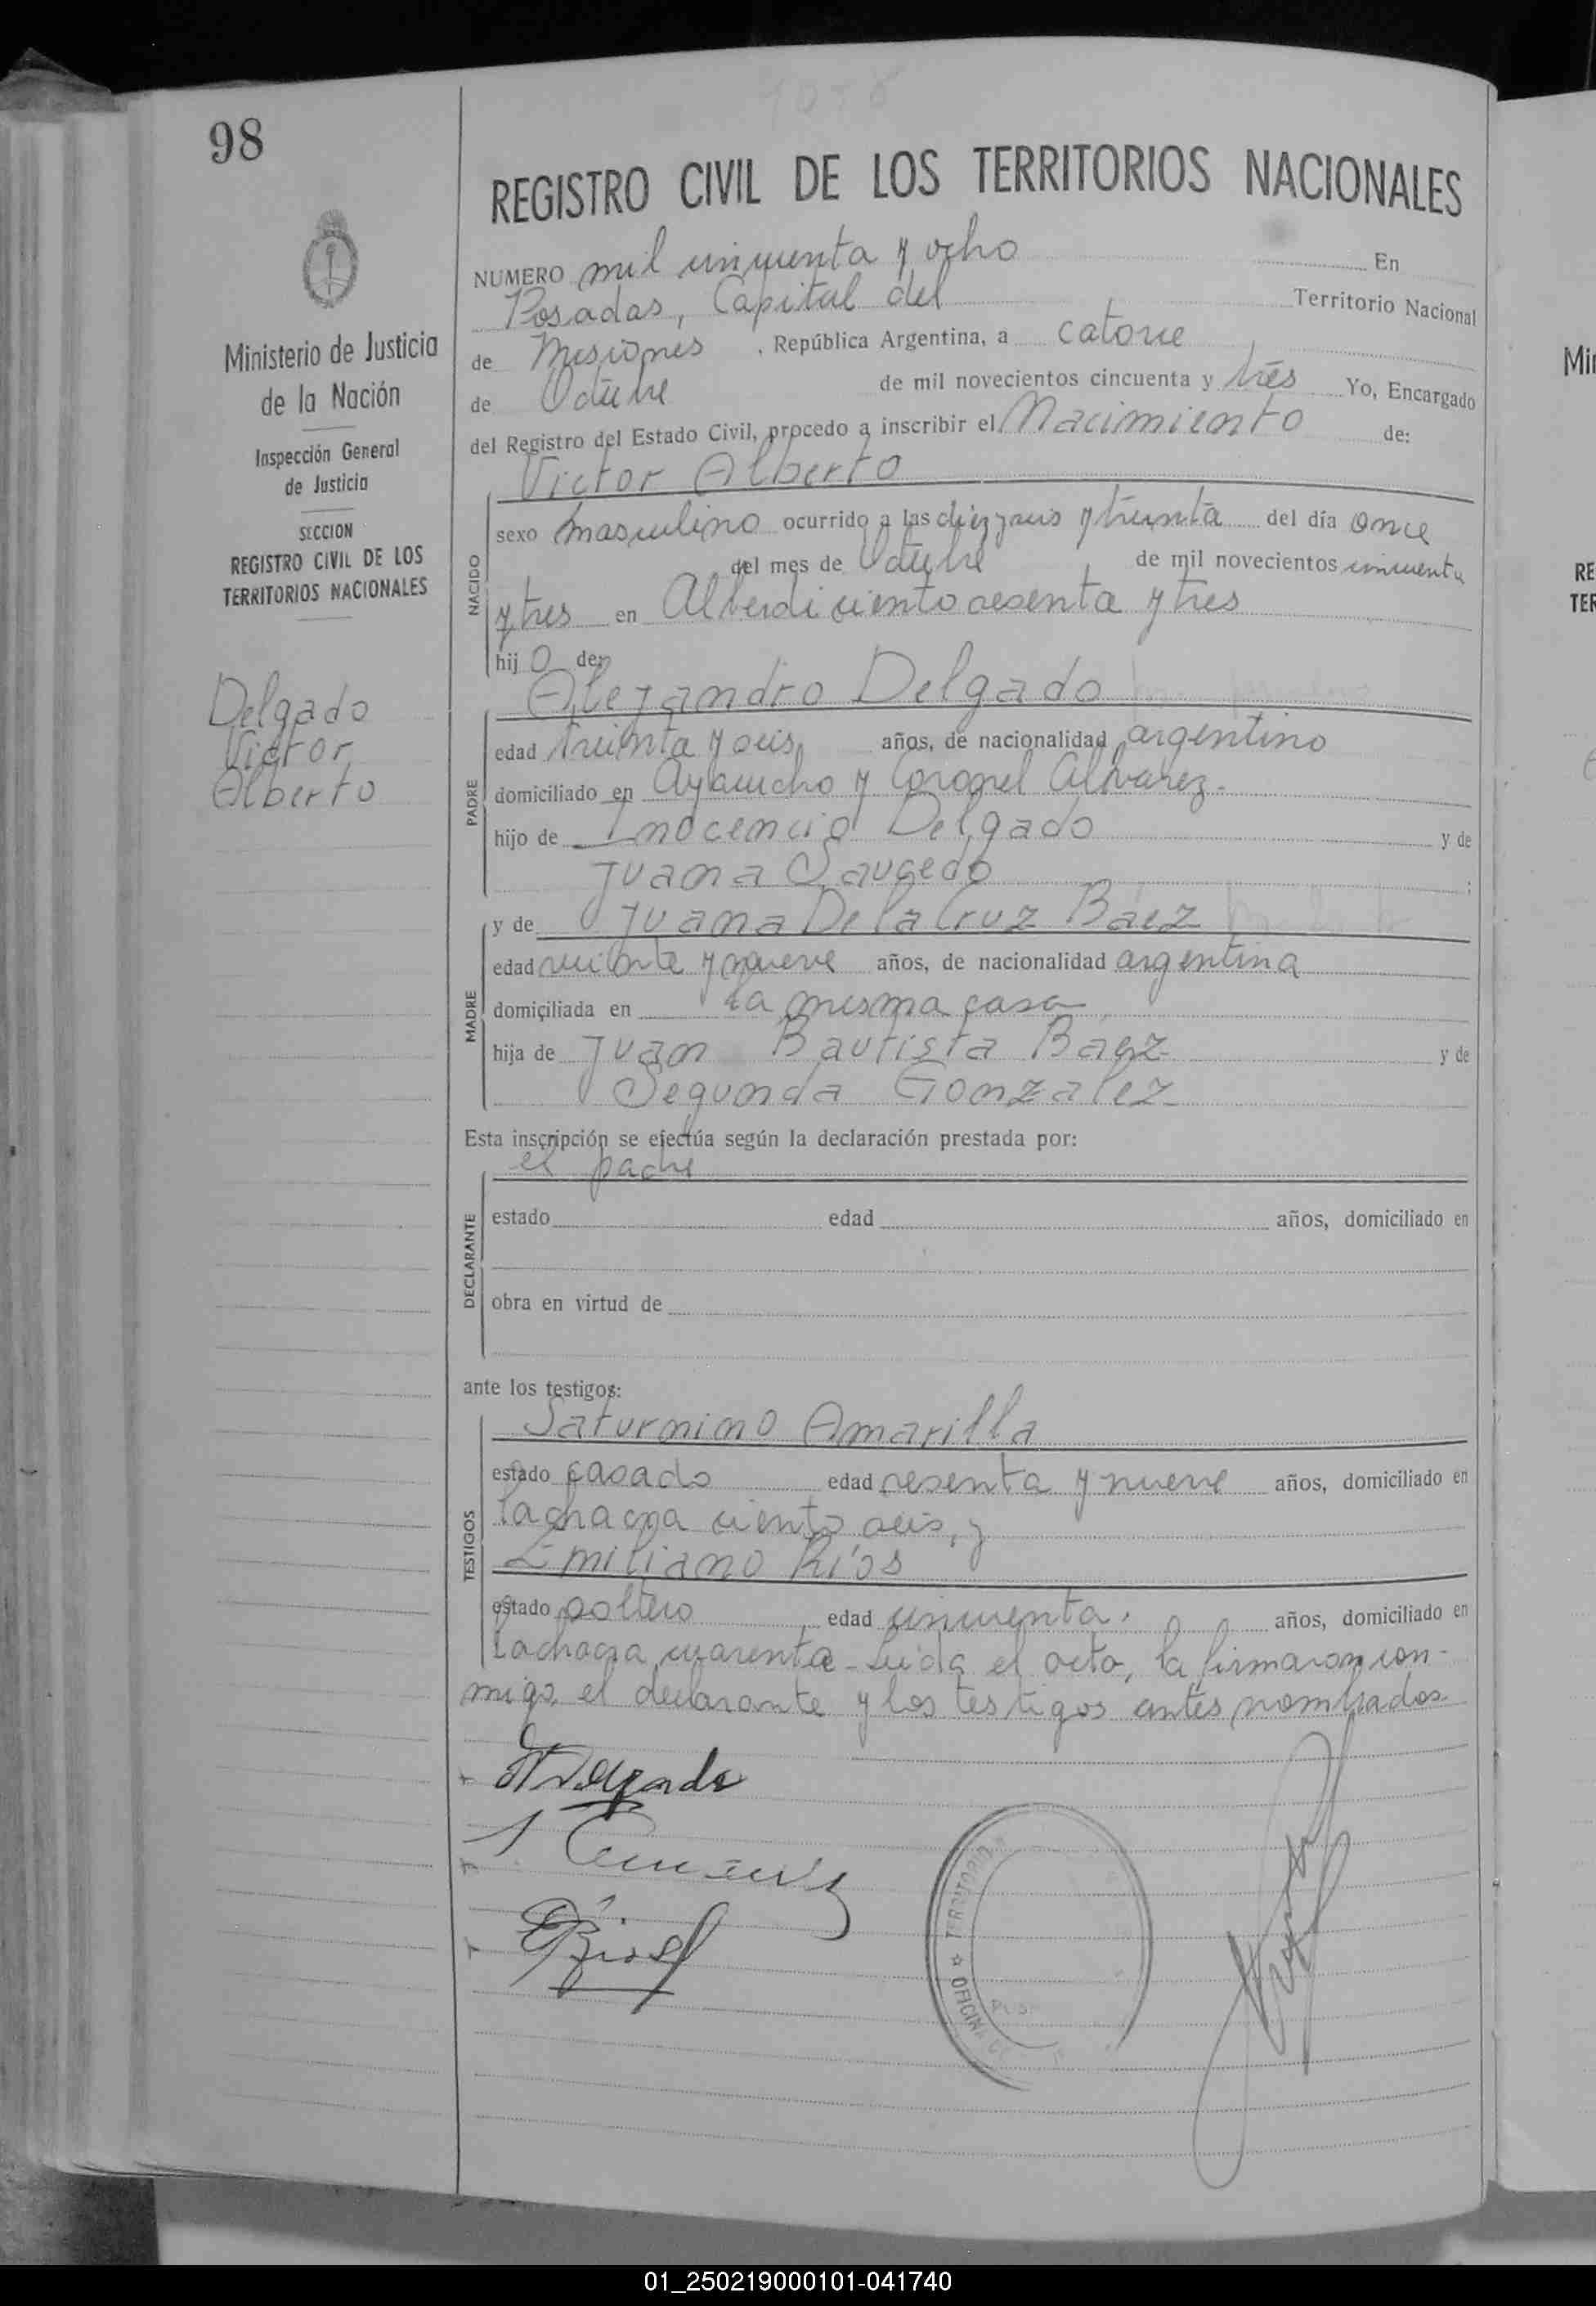 1058
98
REGISTRO CIVIL DE LOS TERRITORIOS NACIONALES
NUMERO mil cincuenta y ocho En
Posadas, Capital del Territorio Nacional
de Misiones, República Argentina, a catorce
de Octubre de mil novecientos cincuenta y tres Yo, Encargado
del Registro del Estado Civil, procedo a inscribir el Nacimiento de:
Victor Alberto
Ministerio de Justicia
de la Nación
Inspección General
de Justicia
SECCION
REGISTRO CIVIL DE LOS
TERRITORIOS NACIONALES
Delgado
Victor
Alberto
NACIDO
sexo masculino ocurrido a las diez y seis y treinta del día once
del mes de Octubre de mil novecientos cincuenta
y tres en Alberdi ciento sesenta y tres
hijo de:
Alejandro Delgado
PADRE
edad treinta y seis años, de nacionalidad argentino
domiciliado en Ayacucho y Coronel Alvarez.
hijo de Inocencio Delgado y de
Juana Saucedo ;
MADRE
y de Juana De la Cruz Baez
edad veinte y nueve años, de nacionalidad argentina
domiciliada en la misma casa
hija de Juan Bautista Baez y de
Segunda Gonzalez
Esta inscripción se efectúa según la declaración prestada por:
el padre
DECLARANTE
estado edad años, domiciliado en
obra en virtud de
ante los testigos:
Saturnino Amarilla
TESTIGOS
estado casado edad sesenta y nueve años, domiciliado en
la chacra ciento seis, y
Emiliano Ríos
estado soltero edad cincuenta. años, domiciliado en
la chacra cuarenta - Leida el acta, la firmaron con-
migo, el declarante y los testigos antes nombrados
A Delgado
E Rios
TERRITORIOS
OFICINA DE
01_250219000101-041740